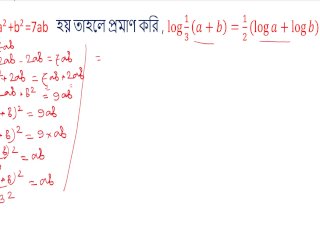 a²+b²=7ab হয় তাহলে প্রমাণ করি , log 1/3 (a + b) = 1/2 (log a + log b)
7ab
2ab - 2ab = 7ab =
² + 2ab = 7ab + 2ab
ab + b² = 9ab
+ b)² = 9ab
+ b)² = 9 × ab
b)² = ab
+ b)² = ab
3²